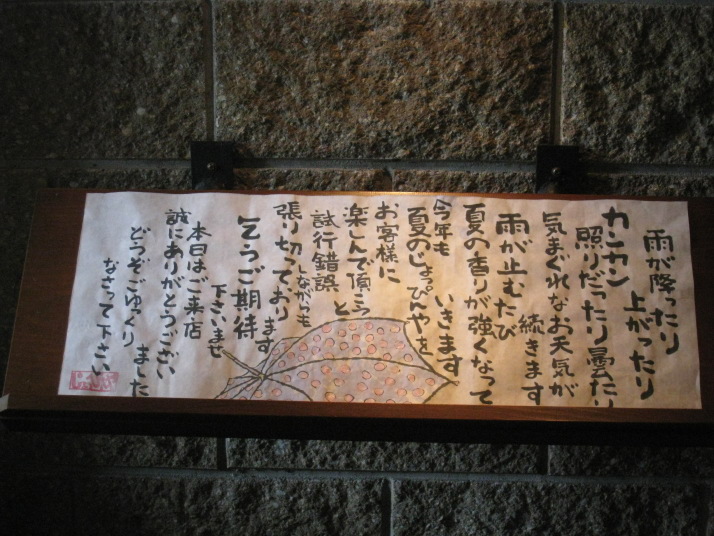 雨が降ったり
上がったり
カンカン
照りだったり曇たり
気まぐれなお天気が
続きます
雨が止むたび
夏の香りが強くなって
いきます
今年も
夏のじょっぴやを
お客様に
楽しんで頂こうと
試行錯誤
しながらも
張り切っております
乞うご期待
下さいませ
本日はご来店
誠にありがとうござい
ました
どうぞごゆっくり
なさって下さい